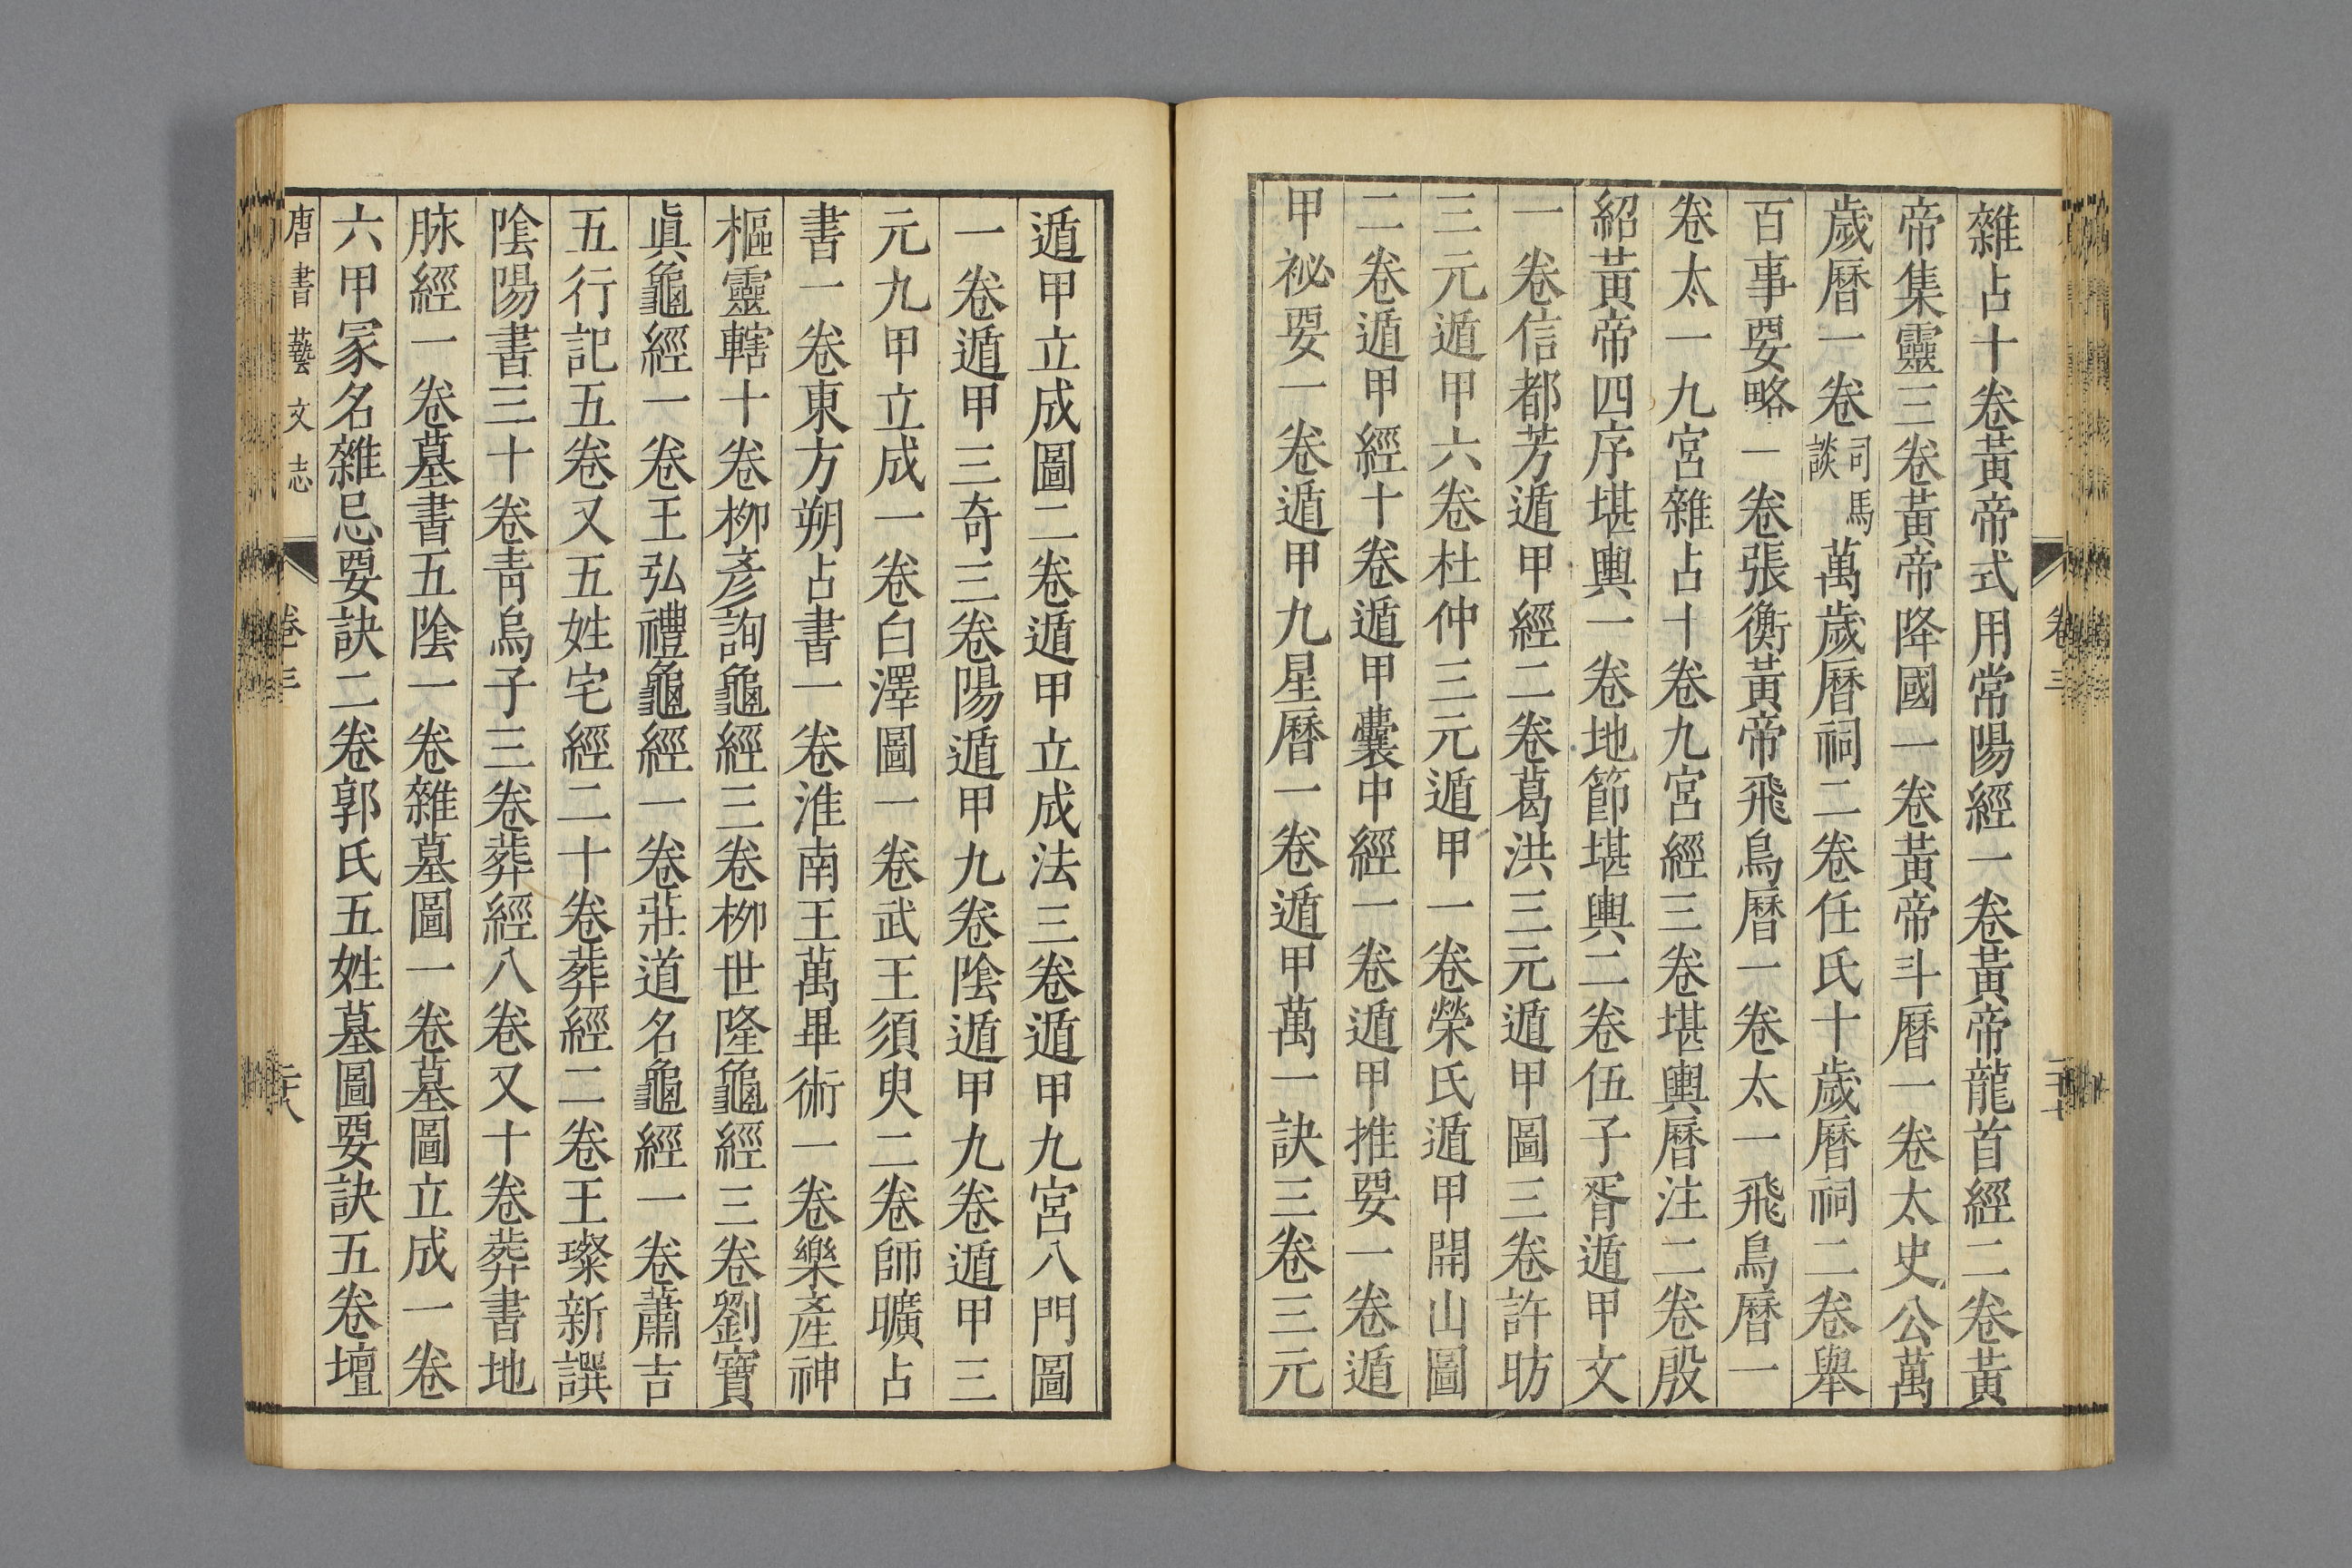 雜占十卷黃帝式用常陽經一卷黃帝龍首經二卷黃
帝集靈三卷黃帝降國一卷黃帝斗曆一卷太史公萬
歲曆一卷司馬談萬歲曆祠二卷任氏十歲曆祠二卷舉
百事要略一卷張衡黃帝飛鳥曆一卷太一飛鳥曆一
卷太一九宮雜占十卷九宮經三卷堪輿曆注二卷殷
紹黃帝四序堪輿一卷地節堪輿二卷伍子胥遁甲文
一卷信都芳遁甲經二卷葛洪三元遁甲圖三卷許昉
三元遁甲六卷杜仲三元遁甲一卷榮氏遁甲開山圖
二卷遁甲經十卷遁甲囊中經一卷遁甲推要一卷遁
甲祕要一卷遁甲九星曆一卷遁甲萬一訣三卷三元
遁甲立成圖二卷遁甲立成法三卷遁甲九宮八門圖
一卷遁甲三奇三卷陽遁甲九卷陰遁甲九卷遁甲三
元九甲立成一卷白澤圖一卷武王須臾二卷師曠占
書一卷東方朔占書一卷淮南王萬畢術一卷樂產神
樞靈轄十卷柳彥詢龜經三卷柳世隆龜經三卷劉寶
眞龜經一卷王弘禮龜經一卷莊道名龜經一卷蕭吉
五行記五卷又五姓宅經二十卷葬經二卷王璨新譔
陰陽書三十卷靑烏子三卷葬經八卷又十卷葬書地
脉經一卷墓書五陰一卷雜墓圖一卷墓圖立成一卷
六甲冢名雜忌要訣二卷郭氏五姓墓圖要訣五卷壇
唐書藝文志 卷三 二十八